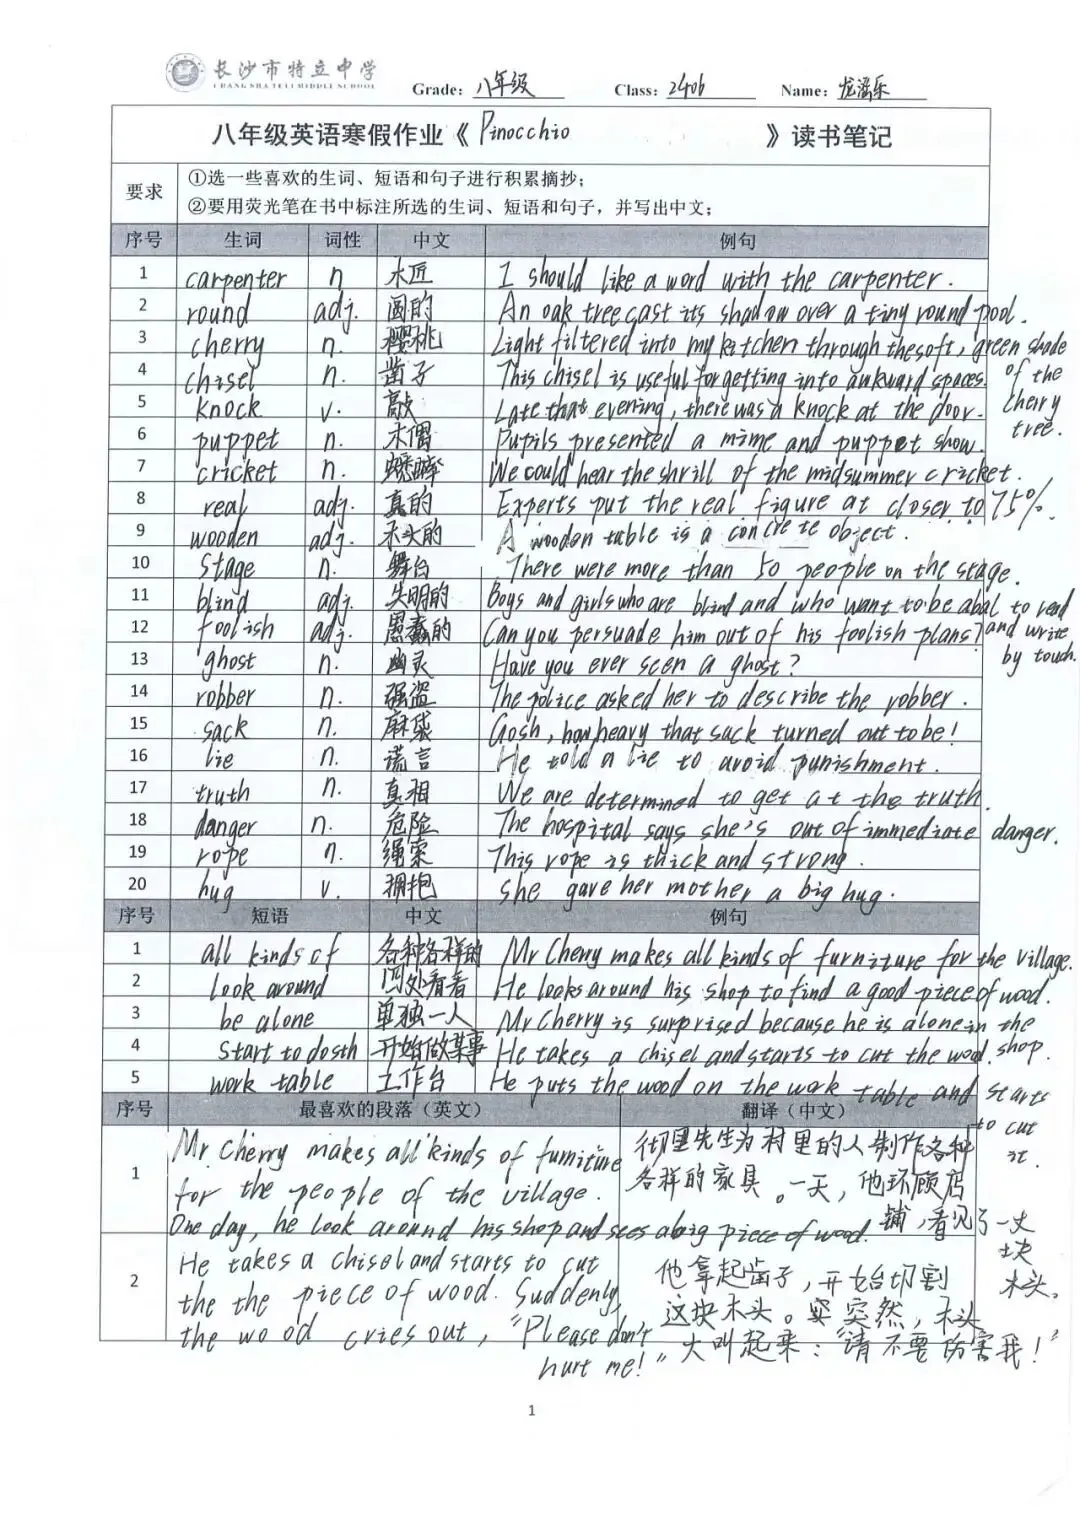 长沙市特立中学
CHANGSHA TELI MIDDLE SCHOOL
Grade: 八年级 Class: 2406 Name: 龙滛乐
八年级英语寒假作业《Pinocchio》读书笔记
要求
①选一些喜欢的生词、短语和句子进行积累摘抄；
②要用荧光笔在书中标注所选的生词、短语和句子，并写出中文；
序号 生词 词性 中文 例句
1 carpenter n 木匠 I should like a word with the carpenter.
2 round adj. 圆的 An oak tree cast its shadow over a tiny round pool.
3 cherry n. 樱桃 Light filtered into my kitchen through the soft, green shade of the cherry tree.
4 chisel n. 凿子 This chisel is useful for getting into aukward spaces.
5 knock v. 敲 Late that evening, there was a knock at the door.
6 puppet n. 木偶 Pupils presented a mime and puppet show.
7 cricket n. 蟋蟀 We could hear the shrill of the midsummer cricket.
8 real adj. 真的 Experts put the real figure at closer to 75%.
9 wooden adj. 木头的 A wooden table is a concrete object.
10 stage n. 舞台 There were more than 50 people on the stage.
11 blind adj. 失明的 Boys and girls who are blind and who want to be abal to read and write by touch.
12 foolish adj. 愚蠢的 Can you persuade him out of his foolish plans?
13 ghost n. 幽灵 Have you ever seen a ghost?
14 robber n. 强盗 The police asked her to describe the robber.
15 sack n. 麻袋 Gosh, how heavy that sack turned out to be!
16 lie n. 谎言 He told a lie to avoid punishment.
17 truth n. 真相 We are determined to get at the truth.
18 danger n. 危险 The hospital says she's out of immediate danger.
19 rope n. 绳索 This rope is thick and strong.
20 hug v. 拥抱 She gave her mother a big hug.
序号 短语 中文 例句
1 all kinds of 各种各样的 Mr Cherry makes all kinds of furniture for the village.
2 look around 四处看看 He looks around his shop to find a good piece of wood.
3 be alone 单独一人 Mr Cherry is surprised because he is alone in the shop.
4 start to do sth 开始做某事 He takes a chisel and starts to cut the wood.
5 work table 工作台 He puts the wood on the work table and starts to cut it.
序号 最喜欢的段落（英文） 翻译（中文）
1
Mr. Cherry makes all kinds of furniture
for the people of the village.
One day, he look around his shop and sees a big piece of wood.
彻里先生为村里的人制作各种
各样的家具。一天，他环顾店
铺，看见了一大
块
木头。
2
He takes a chisel and starts to cut
the the piece of wood. Suddenly,
the wood cries out, "Please don't
hurt me!"
他拿起凿子，开始切割
这块木头。突然，木头
大叫起来："请不要伤害我！"
1